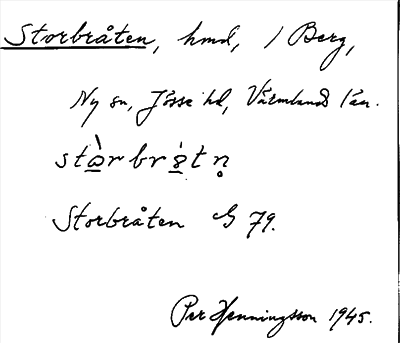 Storbråten, hmd, / Berg,
Ny sn, Jösse hd, Värmlands län.
stὰrbrὲtn̥
Storbråten G 79.
Per Henningsson 1945.